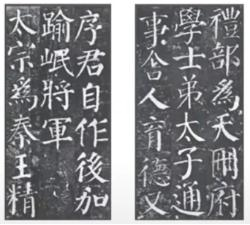 禮部為天冊府
學士弟太子通
事舍人育德又
序君自作後加
踰岷將軍
太宗為秦王精